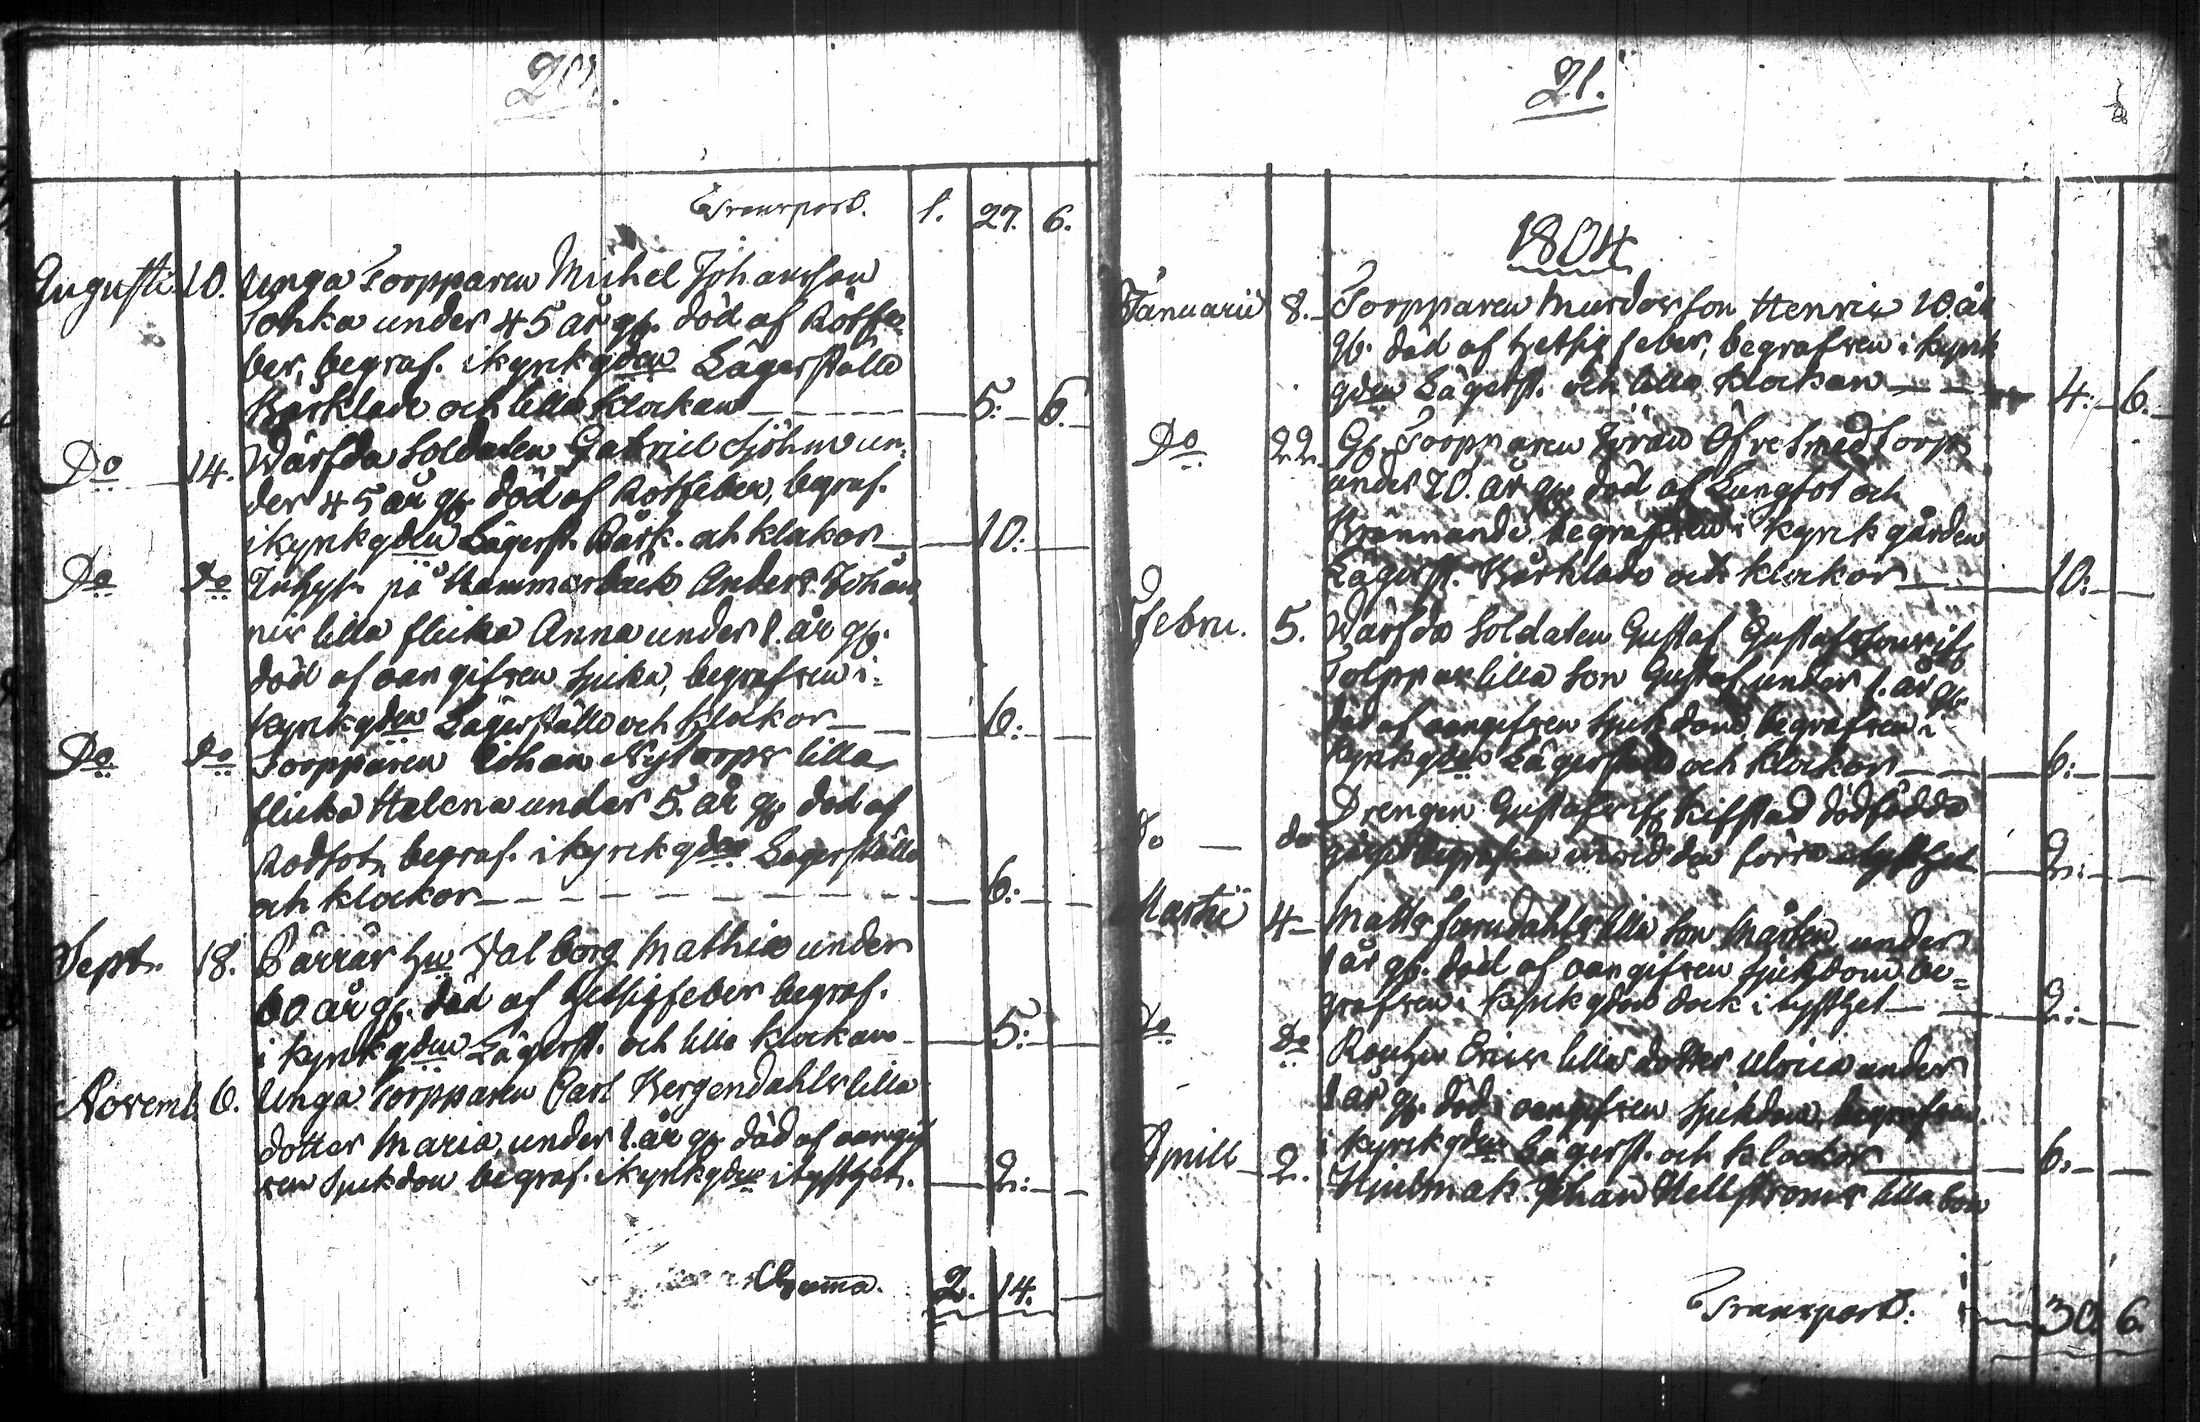 20.
Transport. 1. 27. 6.
Augusti 10. Unga Torpparen Michel Johansson
under 45 år gl. död af Rötfe
ber, begraf. i kyrkgden Lägerställe
Bårklade och lilla klockan 5. 6.
Do 14. Wärfda Soldaten Gabriel Sjöhm un
der 45 år gl. död af Rötfeber, begraf.
i kyrkgden Lägerst. Bårk. och klockor 10.
Do Do Inhys på Hammarback Anders Johan
nis lilla flicka Anna under 1. år gl.
död af oangifven sjuka, begrafven i
kyrkgden Lägerställe och klockor 6.
Do Do Torpparen Johan Nytorps lilla
flicka Helena under 5. år gl. död af
Rödsot, begraf. i kyrkgden Lägerställe
och klockor 6.
Sept. 18. Valborg Mathia under
60 år gl. död af Hetsigfeber begraf.
i kyrkgden Lägerst. och lilla klockan 5.
Novemb. 6. Unga Torpparen Carl Bergendahls lilla
dotter Maria, under 1. år gl. död af oangif
ven sjukdom begraf. i kyrkgden i tysthet. 2.
Summa. 2. 14.
21.
1804
Januarii 8. Torpparen Murdos son Henric 10 år
gl. död af hetsig feber, begrafven i kyrk
gden Lägerst. och lilla klockan 4. 6.
Do 22. Gl. Torpparen Jöran Öfresmedtorp
under 70. år gl. död af Lungsot och
Brännande begrafven i kyrkgården
Lägerst. Bårklade och klockor 10.
Febru. 5. Wärfda Soldaten Gustaf
lilla son Gustaf under 1. år gl.
död af oangifven sjukdom, begrafven i
kyrkgden Lägerställe och klockor 6.
do do Drengen Gustafs dödfödda
begrafven den förra i tysthet 2.
Martii 4 Matts lilla son Mårten under
1 år gl. död af oangifven sjukdom be
grafven i kyrkgden dock i tysthet 2.
Do Do Erics lilla dotter Ulrica under
1 år gl. död i oangifven sjukdom, begrafven
i kyrkgden Lägerst. och klockor 6.
Aprill 2. Hjulmak. Johan Hellströms lilla son
Transport. 30. 6.